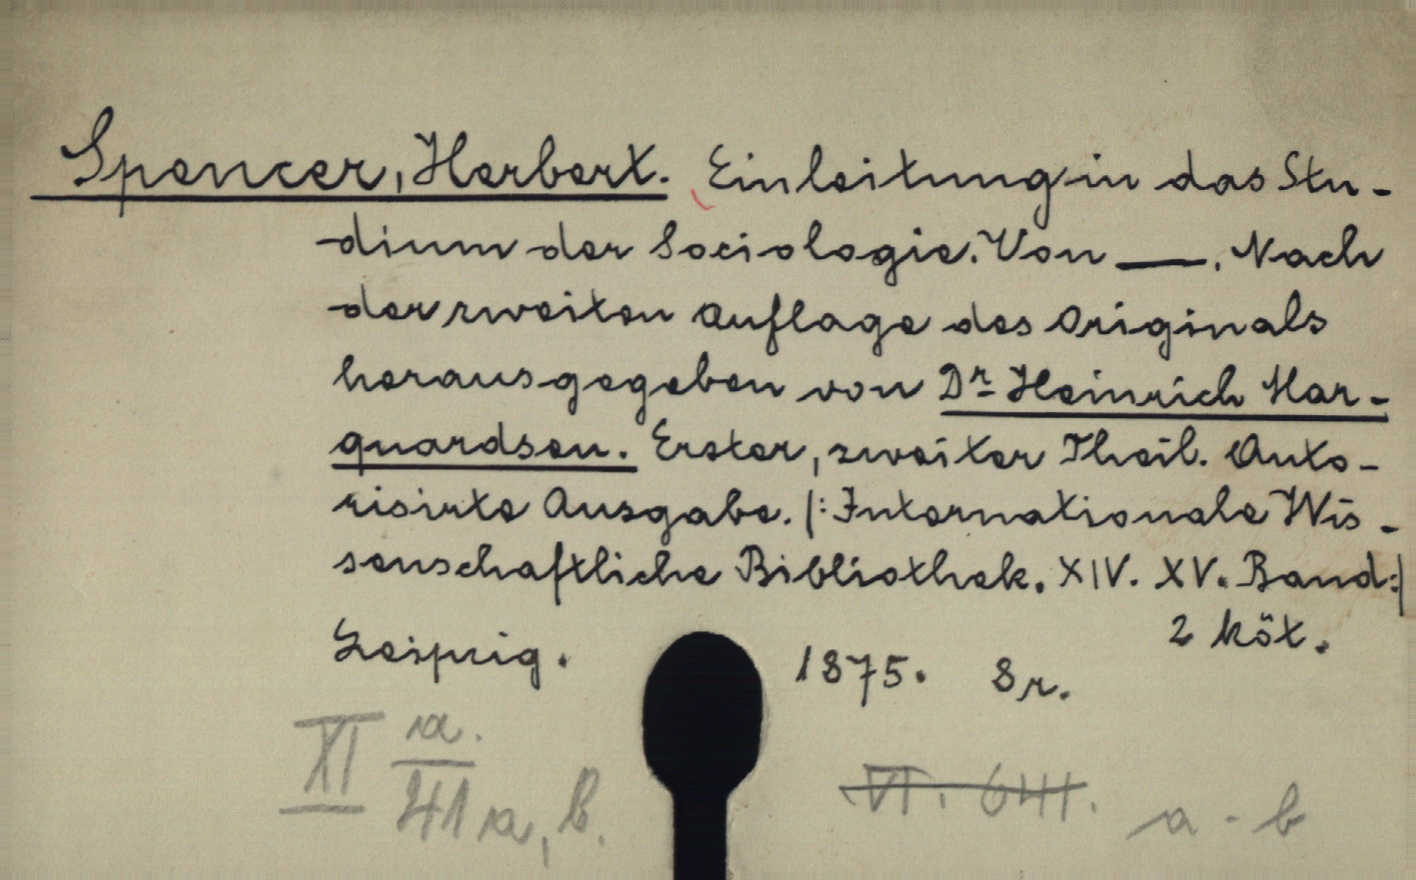 Spencer, Herbert. Einleitung in das Stu-
dium der Sociologie. Von —. Nach
der zweiten Auflage des Originals
herausgegeben von Dr Heinrich Mar-
quardsen. Erster, zweiter Theil. Auto-
risirte Ausgabe. /: Internationale Wis-
senschaftliche Bibliothek. XIV. XV. Band :/
2 köt.
Leipzig. 1875. 8r.
XI a. VI. 641. a - b
41 a, b.